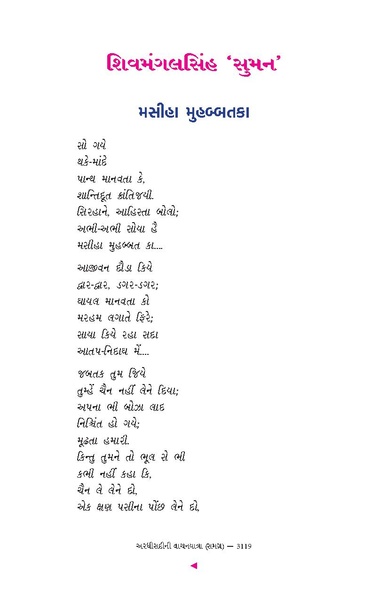 શિવમંગલસિંહ ‘સુમન’
મસીહા મુહબ્બતકા
સો ગયે
થકે-માંદે
પાન્થ માનવતા કે,
શાન્તિદૂત ક્રાંતિજયી.
સિરહાને, આહિસ્તા બોલો;
અભી-અભી સોયા હૈ
મસીહા મુહબ્બત કા....
આજીવન દૌડા કિયે
દ્વાર-દ્વાર, ડગર-ડગર;
ઘાયલ માનવતા કો
મરહમ લગાતે ફિરે;
સાયા કિયે રહા સદા
આતપ-નિદાઘ મેં....
જબતક તુમ જિયે
તુમ્હેં ચૈન નહીં લેને દિયા;
અપના ભી બોઝા લાદ
નિશ્ચિંત હો ગયે;
મૂઢતા હમારી.
કિન્તુ તુમને તો ભૂલ સે ભી
કભી નહીં કહા કિ,
ચૈન લે લેને દો,
એક ક્ષણ પસીના પોંછ લેને દો,
અરધીસદીની વાચનયાત્રા (સમગ્ર) — 3119
◄